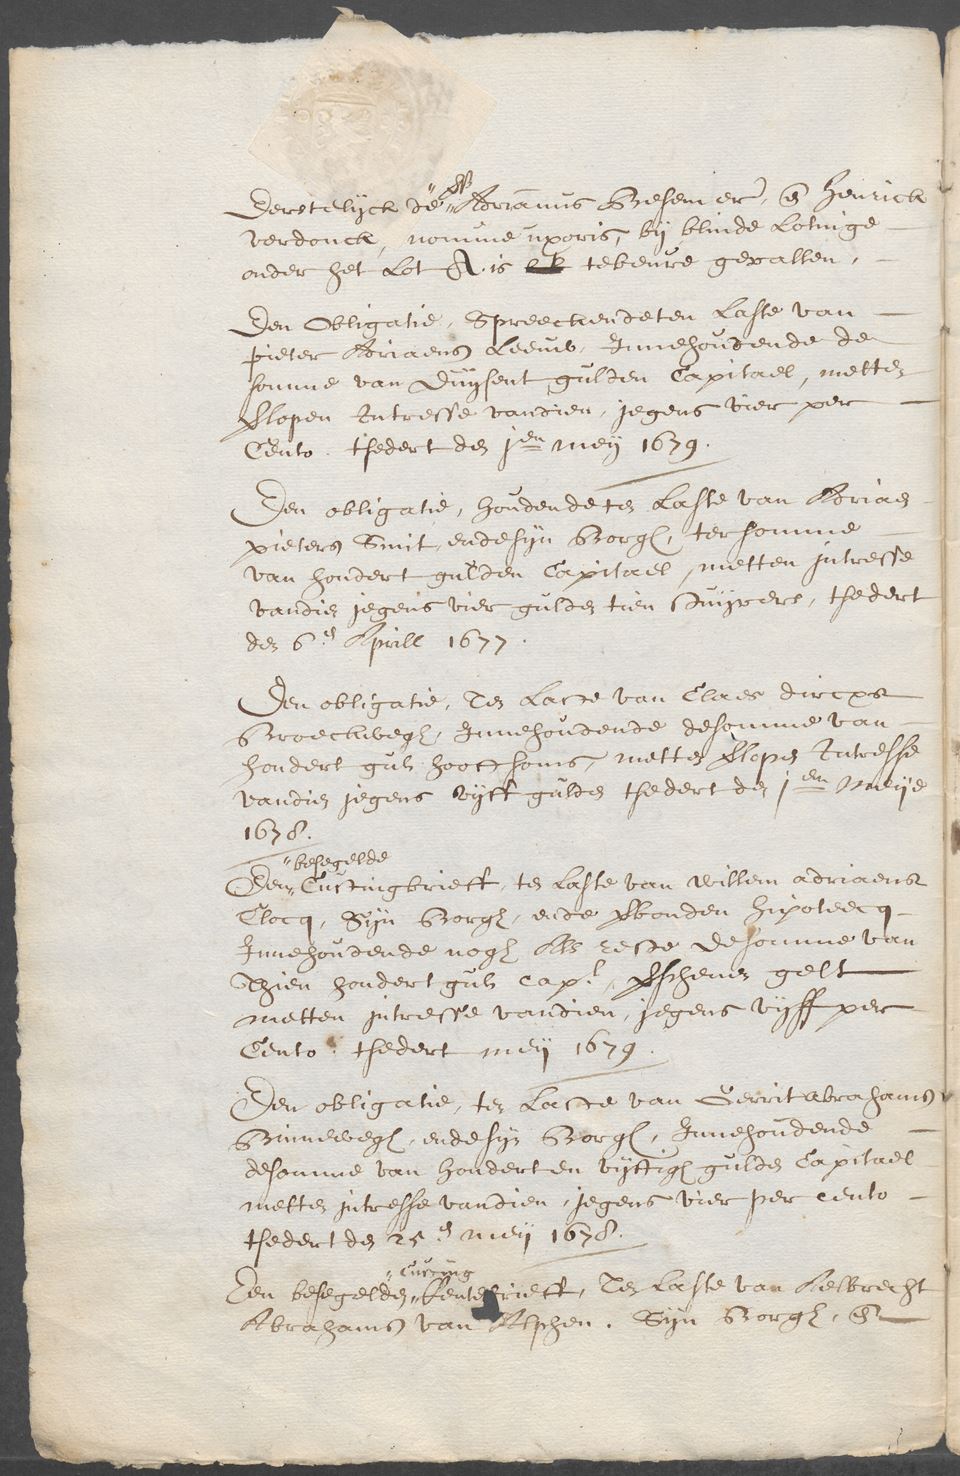 Eerstelijck de Adrianus Besemer, en Henrick
verdonck, nomine uxoris, bij blinde Lotinge
onder het Lot A. is te beure gevallen,
Een Obligatie, Spreeckende ten Laste van
pieter Adriaens Leeuw, Innehoudende de
somme van Duijsent gulden Capitael, metten
verlopen Intresse vandien, jegens vier per
Cento. tsedert den jen meij 1679.
Een obligatie, houdende ten Laste van Adriaen
pieters Smit, ende sijn Borgh, ter somme
van hondert gulden Capitael, metten intresse
vandien jegens vier gulden tien stuijvers, tsedert
den 6e Aprill 1677.
Een obligatie, Ten Laste van Claes dircxs
Broeckwegh, Innehoudende de somme van
hondert guls hooftsoms, metten verlopen Intresse
vandien jegens vijff gulden tsedert den jen Meije
1678.
besegelde
Een Custingbrieff, ten Laste van willem adriaens
Clocq, Sijn Borgh, ende verbonden hipoteecq
Innehoudende nogh Als reste de somme van
Thien hondert guls capl., verschenen gelt
metten intresse vandien, jegens vijff per
Cento. tsedert meij 1679.
Een obligatie, ten Laste van Gerrit abrahams
Binnewegh, ende sijn Borgh, Innehoudende
de somme van hondert en vijftigh gulden Capitael
metten intresse vandien, jegens vier per cento
tsedert den 25e meij 1678.
custing
Een besegelden Rentebrieff, Ten Laste van Aelbrecht
Abrahams van Alphen. Sijn Borgh, en